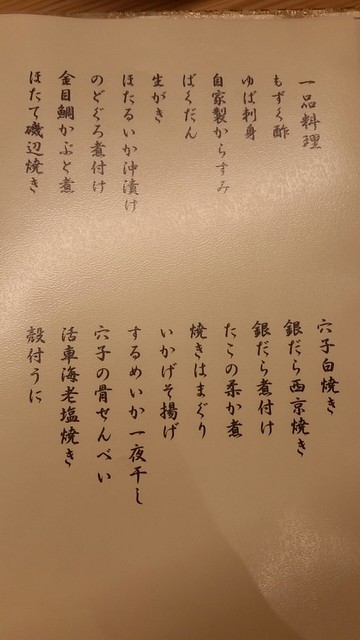 一品料理
もずく酢
ゆば刺身
自家製からすみ
ばくだん
生がき
ほたるいか沖漬け
のどぐろ煮付け
金目鯛かぶと煮
ほたて磯辺焼き
穴子白焼き
銀だら西京焼き
銀だら煮付け
たこの柔か煮
焼きはまぐり
いかげそ揚げ
するめいか一夜干し
穴子の骨せんべい
活車海老塩焼き
殻付うに